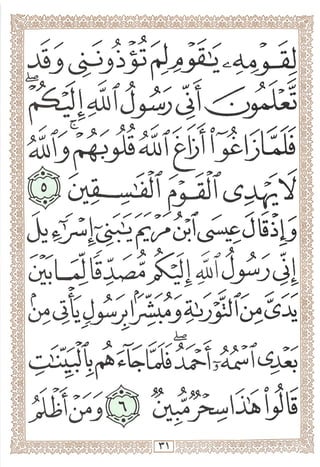 لِقَوْمِهِۦ يَـٰقَوْمِ لِمَ تُؤْذُونَنِى وَقَد
تَّعْلَمُونَ أَنِّى رَسُولُ ٱللَّهِ إِلَيْكُمْ ۖ
فَلَمَّا زَاغُوٓا۟ أَزَاغَ ٱللَّهُ قُلُوبَهُمْ ۚ وَٱللَّهُ
لَا يَهْدِى ٱلْقَوْمَ ٱلْفَـٰسِقِينَ ٥
وَإِذْ قَالَ عِيسَى ٱبْنُ مَرْيَمَ يَـٰبَنِىٓ إِسْرَٰٓءِيلَ
إِنِّى رَسُولُ ٱللَّهِ إِلَيْكُم مُّصَدِّقًا لِّمَا بَيْنَ
يَدَىَّ مِنَ ٱلتَّوْرَىٰةِ وَمُبَشِّرًۢا بِرَسُولٍ يَأْتِى مِنۢ
بَعْدِى ٱسْمُهُۥٓ أَحْمَدُ ۖ فَلَمَّا جَآءَهُم بِٱلْبَيِّنَـٰتِ
قَالُوا۟ هَـٰذَا سِحْرٌ مُّبِينٌ ٦ وَمَنْ أَظْلَمُ
٣١